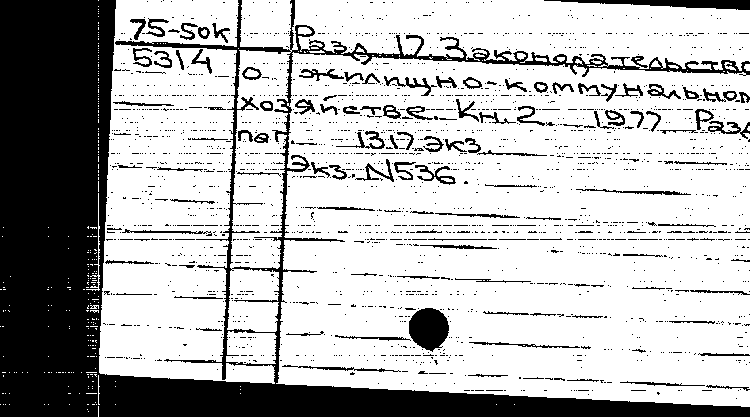 75-50к
5314
Разд. 17. Законодательство
о жилищно-коммунальном
хозяйстве. Кн. 2. 1977. Разд.
паг. 1317 экз.
Экз. N536.